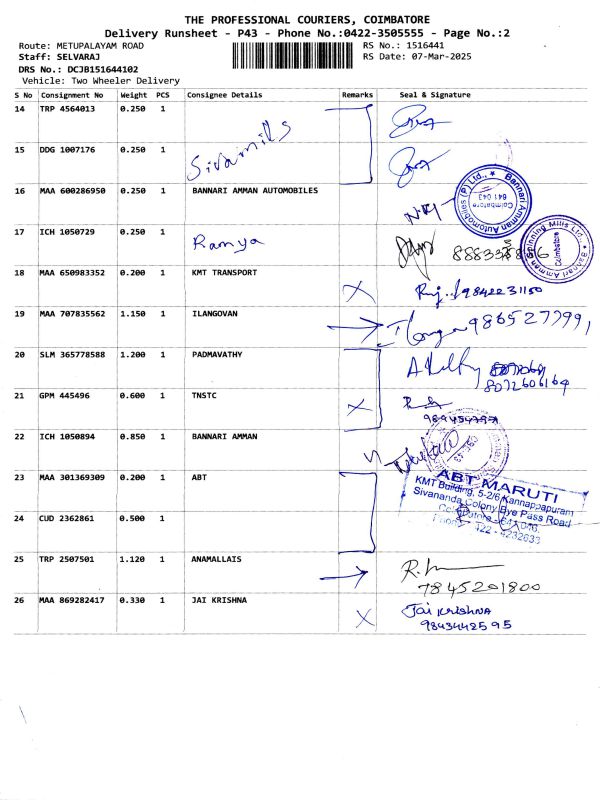 THE PROFESSIONAL COURIERS, COIMBATORE
Delivery Runsheet - P43 - Phone No.:0422-3505555 - Page No.:2
Route: METUPALAYAM ROAD
RS No.: 1516441
Staff: SELVARAJ
RS Date: 07-Mar-2025
DRS No.: DCJB151644102
Vehicle: Two Wheeler Delivery
S No Consignment No Weight PCS Consignee Details Remarks Seal & Signature
14 TRP 4564013 0.250 1
Sivamills
15 DDG 1007176 0.250 1
16 MAA 600286950 0.250 1 BANNARI AMMAN AUTOMOBILES
Bannari Amman Automobiles (P) Ltd.,
Coimbatore
641 043
17 ICH 1050729 0.250 1 Ramya
Bannari Amman Spinning Mills Ltd.,
Coimbatore
18 MAA 650983352 0.200 1 KMT TRANSPORT X 9842231150
19 MAA 707835562 1.150 1 ILANGOVAN 9865277991
20 SLM 365778588 1.200 1 PADMAVATHY
8072606169
21 GPM 445496 0.600 1 TNSTC X
22 ICH 1050894 0.850 1 BANNARI AMMAN
23 MAA 301369309 0.200 1 ABT
ABT MARUTI
KMT Building, 5-2/6 Kannappapuram
Sivananda Colony Bye Pass Road
Coimbatore - 641 046.
Phone: 0422 - 4232633
24 CUD 2362861 0.500 1
25 TRP 2507501 1.120 1 ANAMALLAIS
7845201800
26 MAA 869282417 0.330 1 JAI KRISHNA X Jai KRISHNA
9843442595